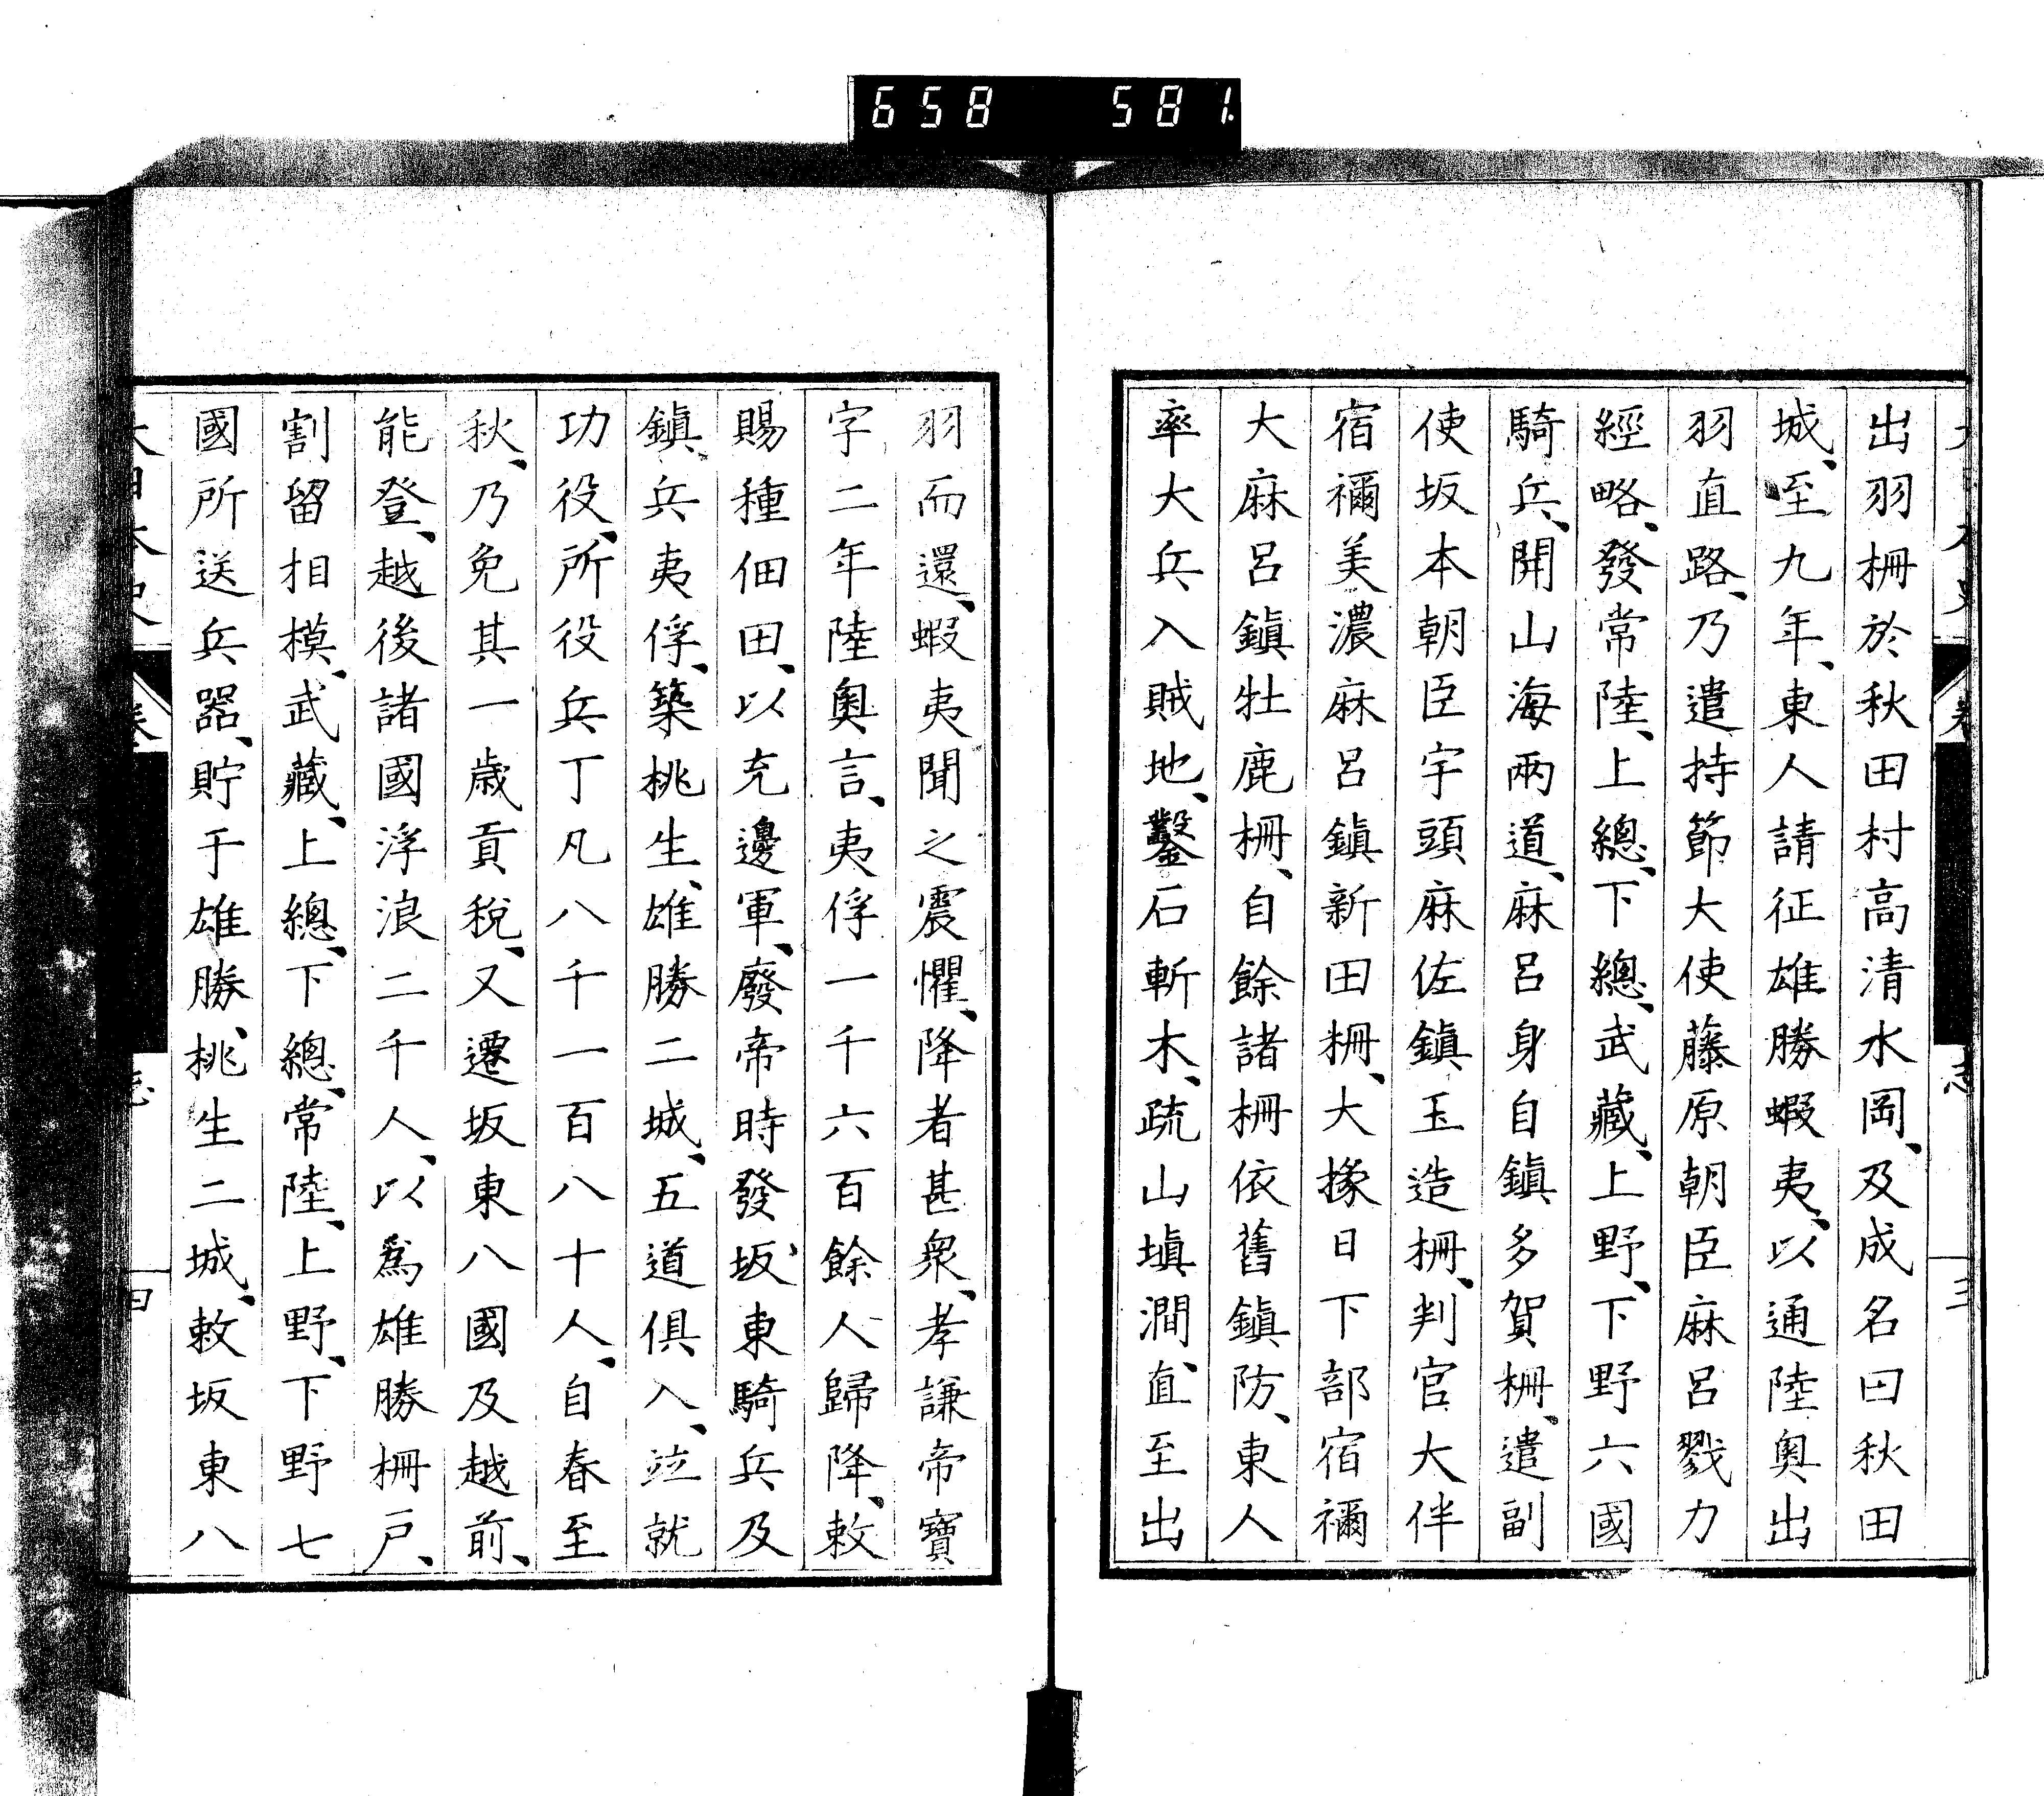 658 581.
出羽柵於秋田村高清水岡、及成名曰秋田
城、至九年、東人請征雄勝蝦夷、以通陸奧出
羽直路、乃遣持節大使藤原朝臣麻呂戮力
經略、發常陸、上總、下總、武藏、上野、下野六國
騎兵、開山海兩道、麻呂身自鎭多賀柵、遣副
使坂本朝臣宇頭麻佐鎭玉造柵、判官大伴
宿禰美濃麻呂鎭新田柵、大掾日下部宿禰
大麻呂鎭牡鹿柵、自餘諸柵依舊鎭防、東人
率大兵入賊地、鑿石斬木、疏山塡澗、直至出
羽而還、蝦夷聞之震懼、降者甚衆、孝謙帝寶
字二年陸奧言、夷俘一千六百餘人歸降、敕
賜種佃田、以充邊軍、廢帝時發、坂東騎兵及
鎭兵夷俘、築桃生、雄勝二城、五道俱入、竝就
功役、所役兵丁凡八千一百八十人、自春至
秋、乃免其一歲貢稅、又遷坂東八國及越前、
能登、越後諸國浮浪二千人、以爲雄勝柵戶、
割留相模、武藏、上總、下總、常陸、上野、下野七
國所送兵器、貯于雄勝、桃生二城、敕坂東八